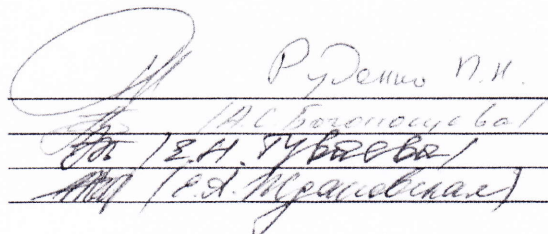 Руденко П.Н.
/А.С. Богоносцева/
/Е.Н. Губаева/
/Е.Я. Ждановская/